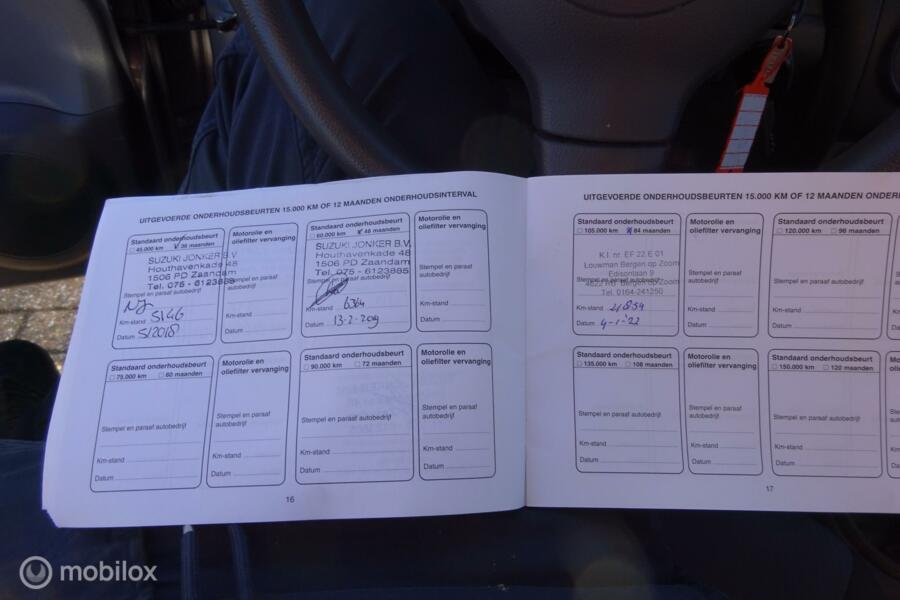 UITGEVOERDE ONDERHOUDSBEURTEN 15.000 KM OF 12 MAANDEN ONDERHOUDSINTERVAL
Standaard onderhoudsbeurt
45.000 km 36 maanden
SUZUKI JONKER B.V.
Houthavenkade 48
1506 PD Zaandam
Tel. 075 - 6123885
Stempel en paraaf autobedrijf
Km-stand 5146
Datum 5/2018
Motorolie en
oliefilter vervanging
Stempel en paraaf
autobedrijf
Km-stand
Datum
Standaard onderhoudsbeurt
60.000 km 48 maanden
SUZUKI JONKER B.V.
Houthavenkade 48
1506 PD Zaandam
Tel. 075 - 6123885
Stempel en paraaf autobedrijf
Km-stand 6364
Datum 13-2-2019
Motorolie en
oliefilter vervanging
Stempel en paraaf
autobedrijf
Km-stand
Datum
Standaard onderhoudsbeurt
75.000 km 60 maanden
Stempel en paraaf autobedrijf
Km-stand
Datum
Motorolie en
oliefilter vervanging
Stempel en paraaf
autobedrijf
Km-stand
Datum
Standaard onderhoudsbeurt
90.000 km 72 maanden
Stempel en paraaf autobedrijf
Km-stand
Datum
Motorolie en
oliefilter vervanging
Stempel en paraaf
autobedrijf
Km-stand
Datum
16
UITGEVOERDE ONDERHOUDSBEURTEN 15.000 KM OF 12 MAANDEN ONDER
Standaard onderhoudsbeurt
105.000 km 84 maanden
K.I. nr. EF 22 E 01
Louwman Bergen op Zoom
Edisonlaan 9
Bergen op Zoom
Tel. 0164-241250
Km-stand
Datum 4-1-'22
Motorolie en
oliefilter vervanging
Stempel en paraaf
autobedrijf
Km-stand
Datum
Standaard onderhoudsbeurt
120.000 km 96 maanden
Stempel en paraaf autobedrijf
Km-stand
Datum
Standaard onderhoudsbeurt
135.000 km 108 maanden
Stempel en paraaf autobedrijf
Km-stand
Datum
Motorolie en
oliefilter vervanging
Stempel en paraaf
autobedrijf
Km-stand
Datum
Standaard onderhoudsbeurt
150.000 km 120 maanden
Stempel en paraaf autobedrijf
Km-stand
Datum
17
mobilox